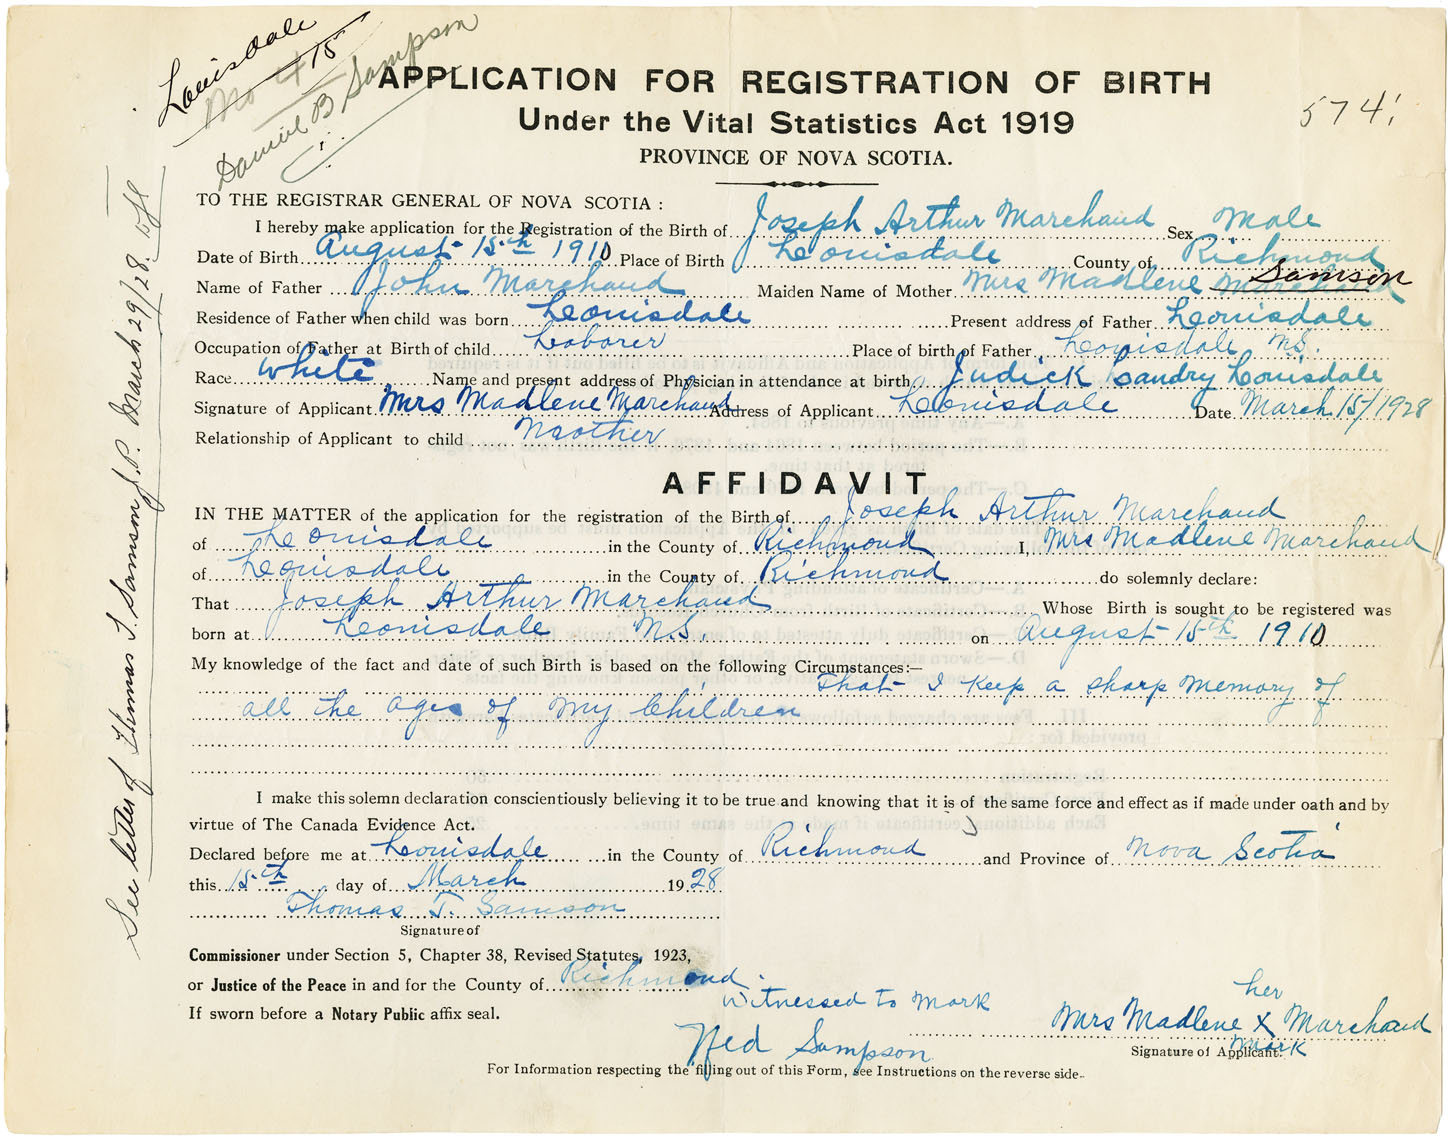 Louisdale
No 4 15
Daniel B Sampson
574
APPLICATION FOR REGISTRATION OF BIRTH
Under the Vital Statistics Act 1919
PROVINCE OF NOVA SCOTIA.
TO THE REGISTRAR GENERAL OF NOVA SCOTIA :
I hereby make application for the Registration of the Birth of Joseph Arthur Marchand Sex Male
Date of Birth August 15th 1910 Place of Birth Louisdale County of Richmond
Name of Father John Marchand Maiden Name of Mother Mrs Madlene Marchand Samson
Residence of Father when child was born Louisdale Present address of Father Louisdale
Occupation of Father at Birth of child Laborer Place of birth of Father Louisdale N.S.
Race White Name and present address of Physician in attendance at birth Judick Landry Louisdale
Signature of Applicant Mrs Madlene Marchand Address of Applicant Louisdale Date March 15/1928
Relationship of Applicant to child Mother
AFFIDAVIT
IN THE MATTER of the application for the registration of the Birth of Joseph Arthur Marchand
of Louisdale in the County of Richmond I, Mrs Madlene Marchand
of Louisdale in the County of Richmond do solemnly declare:
That Joseph Arthur Marchand Whose Birth is sought to be registered was
born at Louisdale N.S. on August 15th 1910
My knowledge of the fact and date of such Birth is based on the following Circumstances:—
That I keep a sharp memory of
all the ages of my children
I make this solemn declaration conscientiously believing it to be true and knowing that it is of the same force and effect as if made under oath and by
virtue of The Canada Evidence Act.
Declared before me at Louisdale in the County of Richmond and Province of Nova Scotia
this 15th day of March 1928
Thomas T. Samson
Signature of
Commissioner under Section 5, Chapter 38, Revised Statutes, 1923,
or Justice of the Peace in and for the County of Richmond
If sworn before a Notary Public affix seal.
Witnessed to mark
Ned Sampson
her
Mrs Madlene X Marchand
mark
Signature of Applicant.
For Information respecting the filling out of this Form, see Instructions on the reverse side.
See letter of Thomas T. Samson J.P. March 29/28